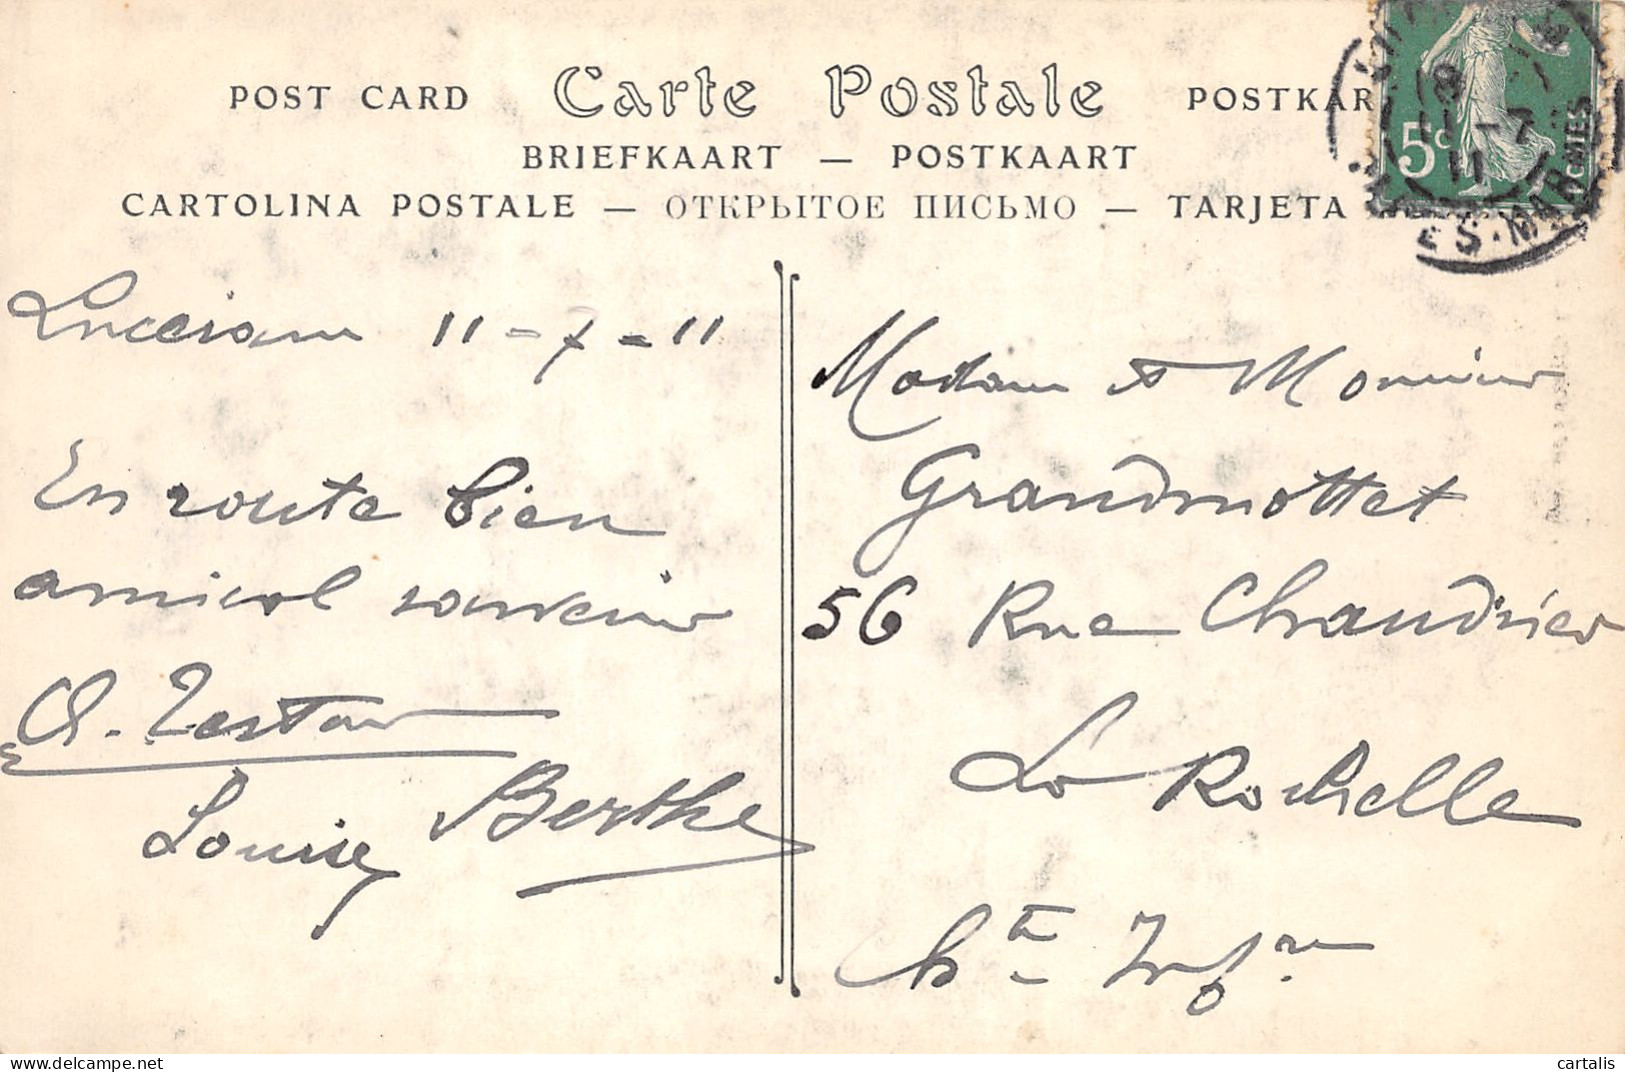 POST CARD Carte Postale POSTKAR
BRIEFKAART — POSTKAART
CARTOLINA POSTALE — ОТКРЫТОЕ ПИСЬМО — TARJETA
5c
18
11 -7
11
ES-MAR
Lucciana 11-7-11
En route bien
amical souvenir
A. Testar
Louise Berthe
Madame et Monsieur
Grandmottet
56 Rue Chaudrier
La Rochelle
Chte Infre
cartalis